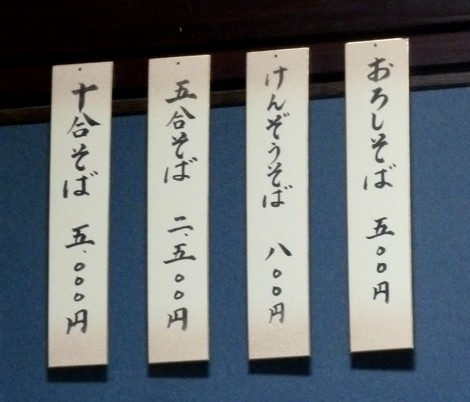 おろしそば 五〇〇円
けんぞうそば 八〇〇円
五合そば 二、五〇〇円
十合そば 五、〇〇〇円